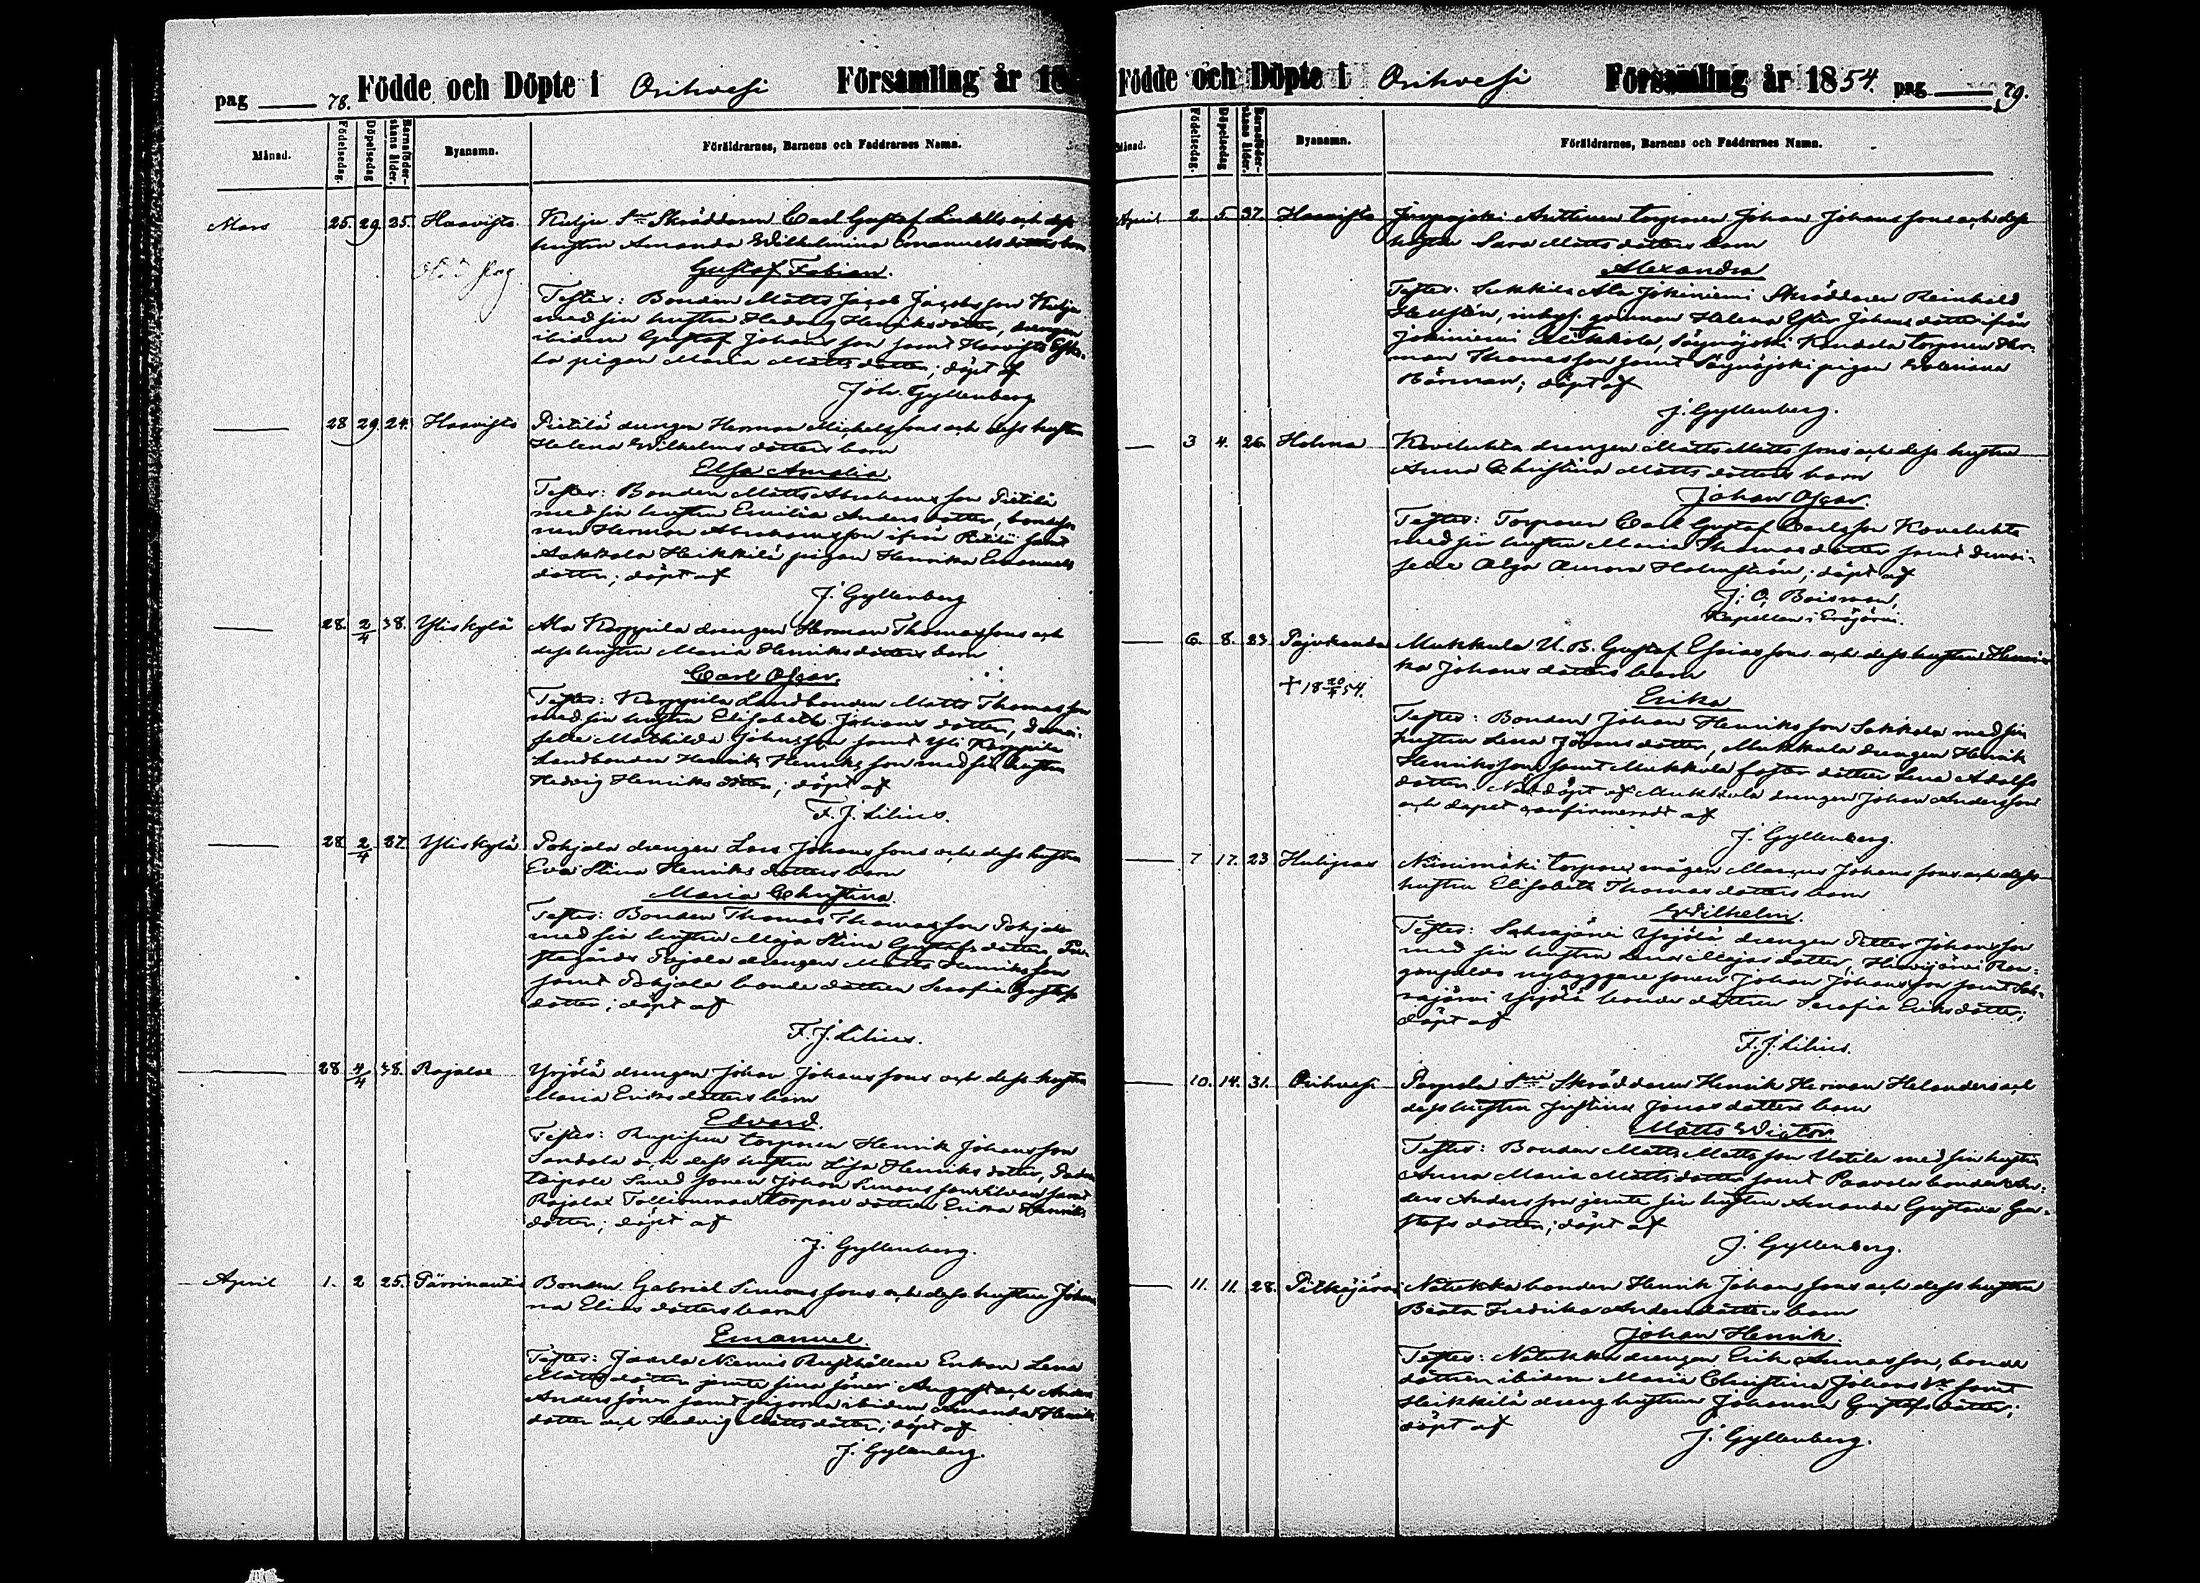 pag 78. Födde och Döpte i Orihvesi Församling år 18
Månad. Födelsedag. Döpelsedag Barnaföderskans ålder. Byanamn. Föräldrarnes, Barnens och Faddrarnes Namn.
Mars 25. 29. 35. Haavisto Kutju Skräddaren Carl Gustaf Lindells och dess
hustru Amanda Wilhelmina Emanuelsdotters barn
Gustaf Fabian.
Testes: Bonden Matts Jacob Jacobsson Kutju
med sin hustru Hedvig Henriksdotter, drengen
ibidem Gustaf Johansson samt Haavisto
pigan Maria Mattsdotter; döpt af
Joh. Gyllenberg
28 29 24. Haavisto Pietilä drengen Herman Michelssons och dess hustru
Helena Wilhelmsdotters barn
Elsa Amalia.
Testes: Bonden Matts Abrahamsson Pietilä
med sin hustru Emilia Andersdotter, bondeso
nen Herman Abrahamsson ifrån Pietilä samt
Aakkula Heikkilä pigan Henrika Emanuels
dotter; döpt af
J. Gyllenberg
28. 2/4 38. Yliskylä Ala Korppila drengen Herman Thomassons och
dess hustru Maria Henriksdotters barn
Carl Oscar.
Testes: Korppila Landbonden Matts Thomasson
med sin hustru Elisabeth Johansdotter, demoi-
selle Mathilda Johnsson samt Yli Korppila
Landbonden Henrik Henriksson med sin hustru
Hedvig Henriksdotter; döpt af
F. J. Lilius.
28. 2/4 27. Yliskylä Pohjala drengen Lars Johanssons och dess hustru
Eva Stina Henriksdotters barn
Maria Christina.
Testes: Bonden Thomas Thomasson Pohjala
med sin hustru Maja Stina Gustafsdotter, Pre-
stegårds Pajala drengen Matts Henriksson
samt Pohjala bondedottren Serafia Gustafs
dotter; döpt af
F. J. Lilius.
28. 4/4 38. Rajalax Yrjölä drengen Johan Johanssons och dess hustru
Maria Eriksdotters barn
Edvard.
Testes: torparen Henrik Johansson
Sandala och dess hustru Lisa Henriksdotter,
Smedsonen Johan Simonsson samt
Rajalax torparedottren Erika Henriks
dotter; döpt af
J. Gyllenberg.
April 1. 2 25. Bonden Gabriel Simonssons och dess hustru Johan
na Eliasdotters barn
Emanuel.
Testes: Niemis Rusthållare Enkan Lena
Mattsdotter jemte sina söner August och Anders
Anderssöner samt pigorna ibidem Amanda Henriks
dotter och Hedvig Mattsdotter; döpt af
J. Gyllenberg.
Födde och Döpte i Orihvesi Församling år 1854. pag 79.
Månad. Födelsedag. Döpelsedag Barnaföderskans ålder. Byanamn. Föräldrarnes, Barnens och Faddrarnes Namn.
April 2. 5 37. Haavisto Anttinen torparen Johan Johanssons och dess
hustru Sara Mattsdotters barn
Alexandra
Testes: Ala Jokiniemi Skräddaren Reinhold
Hellstén, inhys gumman Helena Ester Johansdotter ifrån
Jokiniemi torparen Her-
man Thomasson samt pigan
döpt af
J. Gyllenberg.
3 4. 26. Holma Kovelahta drengen Matts Mattssons och dess hustru
Anna Christina Mattsdotters barn
Johan Oscar.
Testes: Torparen Carl Gustaf Carlsson Kovelahta
med sin hustru Maria Thomasdotter samt demoi-
selle Olga Aurora Holmström; döpt af
J. O. Boisman,
Kapellan i Eräjärvi.
6. 8. 23. Pajukanda Mukkula U. B. Gustaf Esaiassons och dess hustru Henri-
ka Johansdotters barn
+ 18 20/4 54.
Erika
Testes: Bonden Johan Henriksson Sakkola med sin
hustru Lena Göransdotter, Mukkula drengen Henrik
Henriksson samt Mukkula fosterdottren Lena Adolfs
dotter. Nöddöpt af Mukkula drengen Johan Andersson
och dopet confirmeradt af
J. Gyllenberg.
7 17. 23 Niinimäki torparemågen Marcus Johanssons och dess
hustru Elisabeth Thomasdotters barn
Wilhelm.
Testes: Yrjölä drengen Petter Johansson
med sin hustru Lena Majasdotter, Hirvijärvi
nybyggaresonen Johan Johansson samt
Yrjölä bondedottren Serafia Eriksdotter;
döpt af
F. J. Lilius.
10. 14. 31. Orihvesi Skräddaren Henrik Herman Helanders och
dess hustru Justina Jonasdotters barn
Matts Wictor.
Testes: Bonden Matts Mattsson Uotila med sin hustru
Anna Maria Mattsdotter samt Paavola bonden An-
ders Andersson jemte sin hustru Amanda Gustava Gu-
stafsdotter; döpt af
J. Gyllenberg.
11. 11. 28. Pitkäjärvi Natukka bonden Henrik Johanssons och dess hustru
Beata Fredrika Andersdotters barn
Johan Henrik.
Testes: Natukka drengen Erik Annasson, bonde
dottren ibidem Maria Christina Johans dr samt
Heikkilä drenghustrun Johanna Gustafsdotter;
döpt af
J. Gyllenberg.